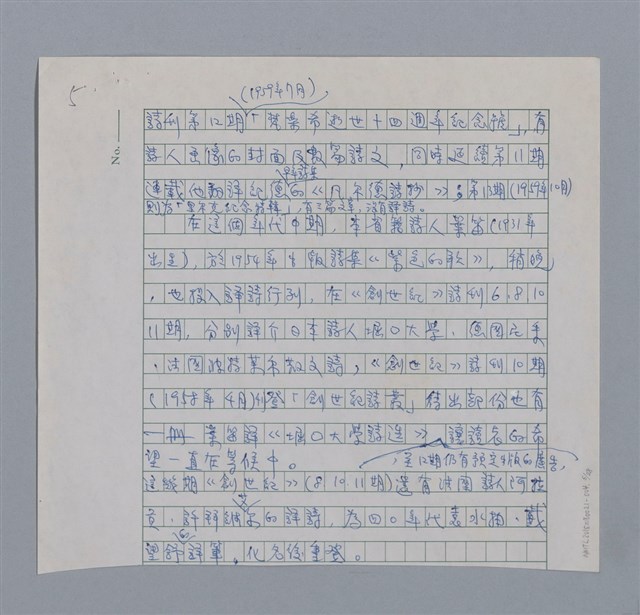 5
(1959年7月)
詩刊第12期「梵樂希逝世十四週年紀念號」,有
詩人畫像的封面及數篇詩文,同時連續第11期
連載他翻譯紀德的《凡爾德詩抄》;第13期(1959年10月)
則為「里爾克紀念特輯」,有三篇文章,沒有譯詩。
在這個年代中期,本省籍詩人葉笛(1931年
出生),於1954年出版詩集《紫色的歌》,稍晚
,也投入譯詩行列,在《創世紀》詩刊6.8.10
11期,分別譯介日本詩人堀口大學、德國尼采
、法國波特萊爾散文詩,《創世紀》詩刊10期
(1958年4月)刊登「創世紀詩叢」待出部份也有
一冊葉笛譯《堀口大學詩選》,讓讀者的希
望一直在等候中。
,至12期仍有預定出版的廣告,
這幾期《創世紀》(8.10.11期)還有
的譯詩,為四〇年代袁水拍、戴
望舒譯筆,化名後重登。
No.